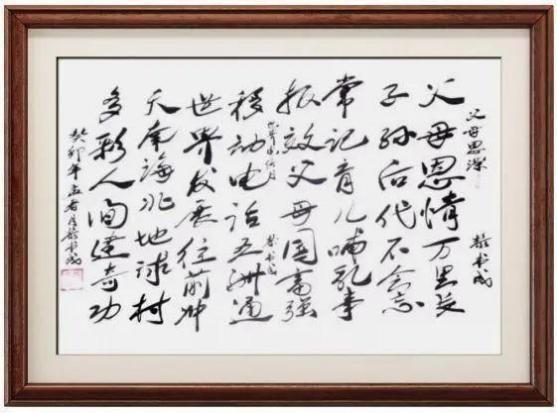 父母恩深
父母恩情万里长
子孙后代不会忘
常记育儿哺乳事
报效父母国富强
移动电话五洲通
世界发展往前冲
天南海北地球村
多彩人间建奇功
癸卯年 月 书成